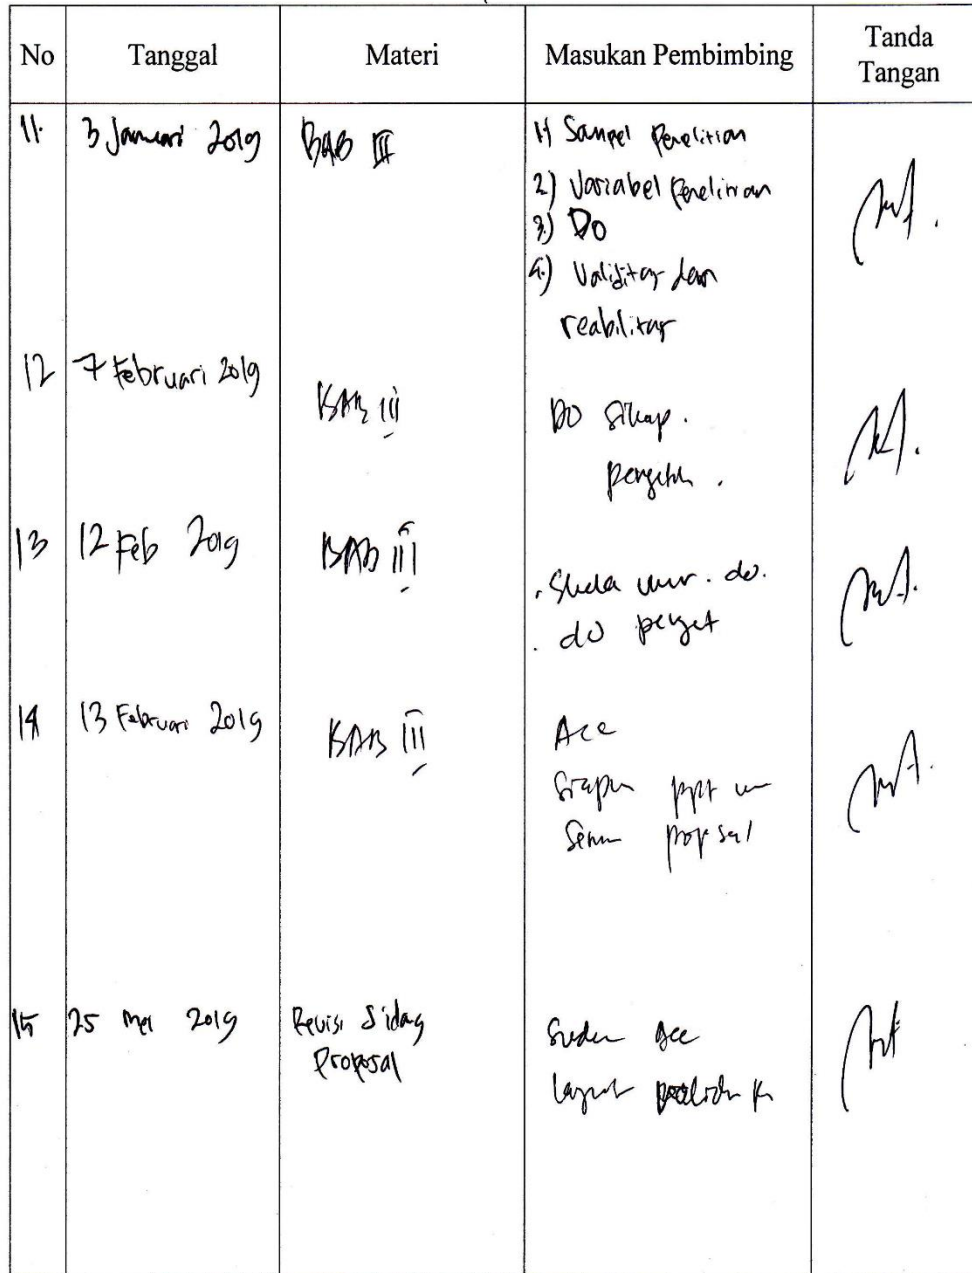 No Tanggal Materi Masukan Pembimbing Tanda Tangan
11. 3 Januari 2019 BAB III 1) Sampel Penelitian
2) Variabel Penelitian
3) DO
4) Validitas dan
reabilitas
12 7 Februari 2019 BAB III DO Sikap.
13 12 Feb 2019 BAB III
. do penget
14 13 Februari 2019 BAB III Acc
ppt
proposal
15 25 Mei 2019 Revisi Sidang Acc
Proposal